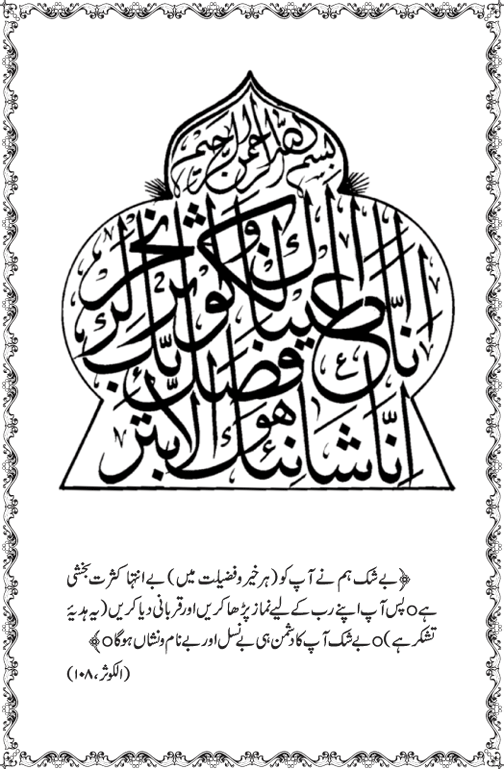 بسم الله الرحمن الرحيم
انا اعطيناك الكوثر
فصل لربك وانحر
ان شانئك هو الابتر
﴿بے شک ہم نے آپ کو (ہر خیر و فضیلت میں) بے انتہا کثرت بخشی
ہےo پس آپ اپنے رب کے لیے نماز پڑھا کریں اور قربانی دیا کریں (یہ ہدیۂ
تشکر ہے)o بے شک آپ کا دشمن ہی بے نسل اور بے نام و نشاں ہوگاo﴾
(الکوثر، ۱۰۸)